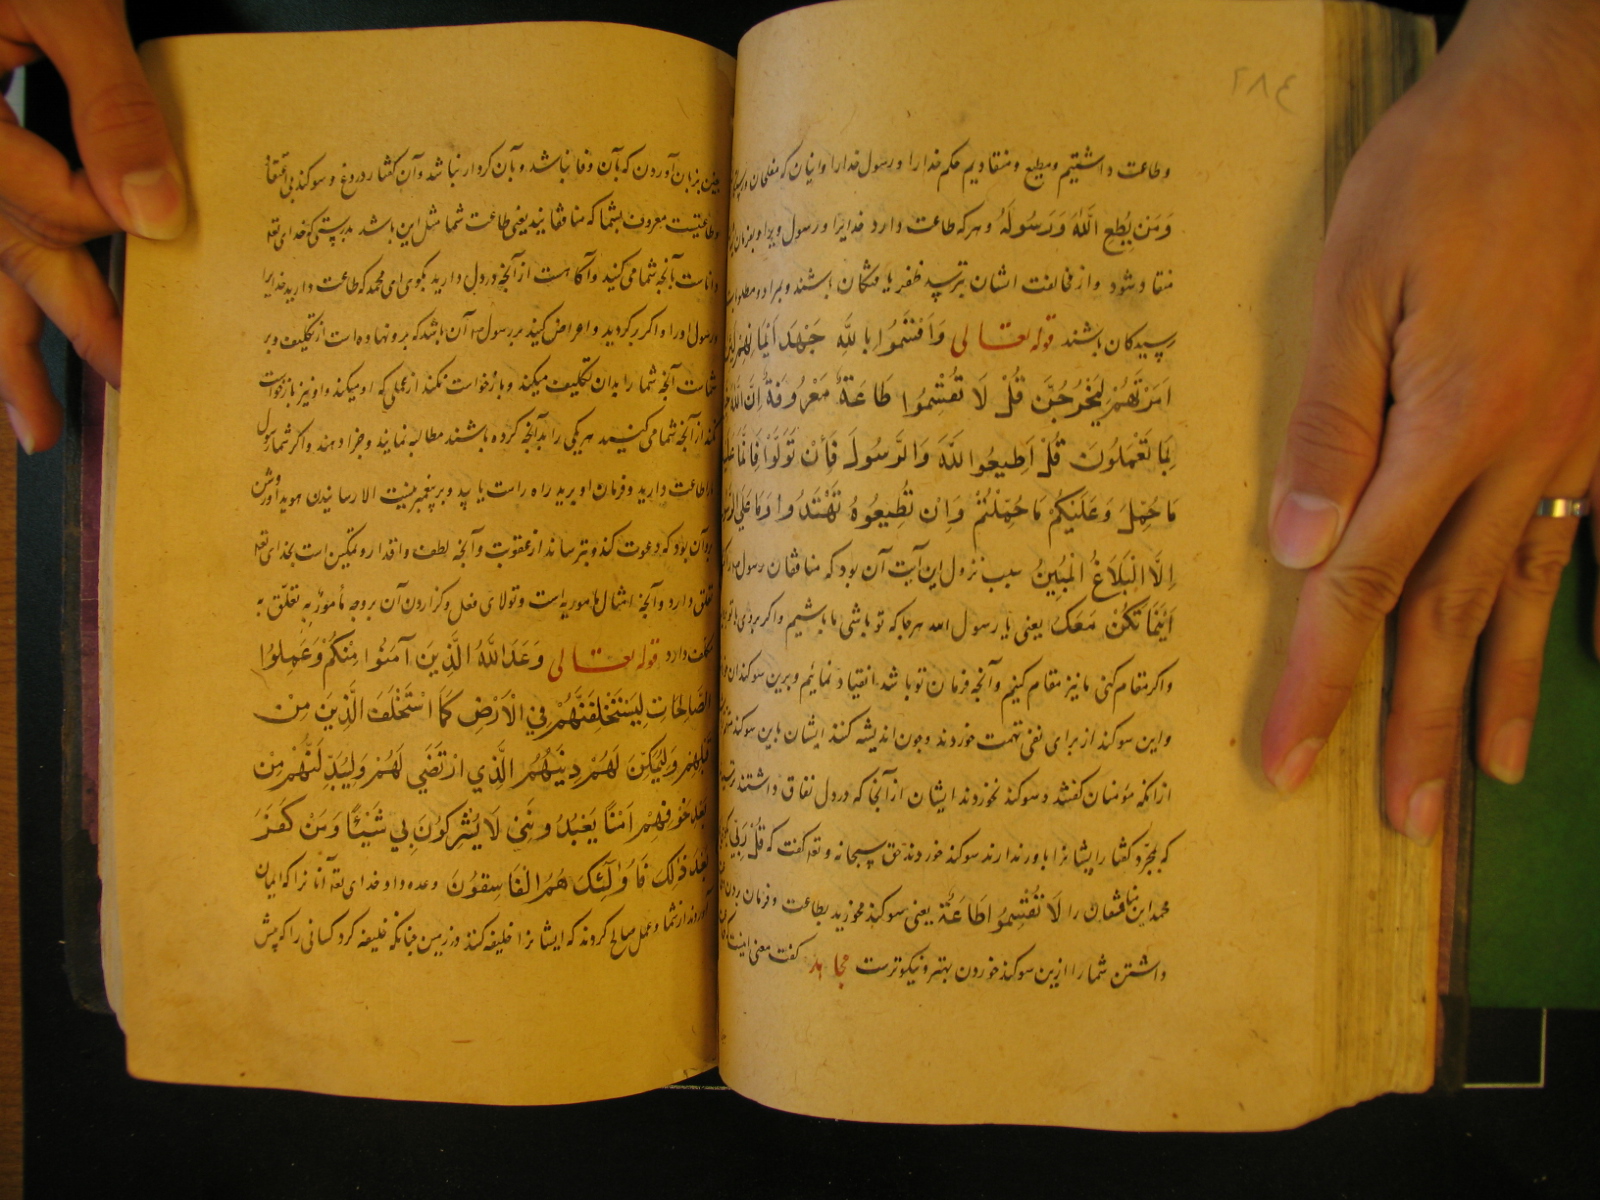 ٢٨٤
وطاعت داشتیم ومطیع ومنقادیم حکم خدارا ورسول خدارا وایشان که مفلحان
وَمَن یُطِعِ اللَّهَ وَرَسُولَهُ وهرکه طاعت دارد خدایرا ورسول ویرا وبفرمان
منقاد شود واز مخالفت ایشان بترسد ظفر یافتکان باشند وبمراد ومطلوب
رسیدکان باشند قوله تعالی وَاَقْسَمُوا بِاللَّهِ جَهْدَ اَیْمَانِهِمْ لَئِنْ
اَمَرْتَهُمْ لَیَخْرُجُنَّ قُلْ لَا تُقْسِمُوا طَاعَةٌ مَعْرُوفَةٌ اِنَّ اللَّهَ
بِمَا تَعْمَلُونَ قُلْ اَطِیعُوا اللَّهَ وَالرَّسُولَ فَاِنْ تَوَلَّوْا فَاِنَّمَا عَلَیْهِ
مَا حُمِّلَ وَعَلَیْکُمْ مَا حُمِّلْتُمْ وَاِنْ تُطِیعُوهُ تَهْتَدُوا وَمَا عَلَی الرَّسُولِ
اِلَّا الْبَلَاغُ الْمُبِینُ سبب نزول این آیت آن بود که منافقان رسول را
اَیْنَمَا تَکُنْ مَعَکَ یعنی یا رسول الله هرجا که تو باشی ما باشیم واکر بروی با تو
واکر مقام کنی ما نیز مقام کنیم وآنچه فرمان تو باشد انقیاد نمائیم وبرین سوکندان
واین سوکند از برای نفی تهمت خوردند وچون اندیشه کنند ایشان باین سوکند
از آنکه مؤمنان کفتند وسوکند نخوردند ایشان از آنجا که در دل نفاق داشتند
که بمجرد کفتار ایشانرا باور ندارند سوکند خوردند حق سبحانه وتعه کفت که قُلْ
محمد این منافقان را لَا تُقْسِمُوا طَاعَةٌ یعنی سوکند مخورید بطاعت وفرمان بردن
داشتن شما را ازین سوکند خوردن بهتر ونیکوترست مجاهد کفت معنی اینست که
بزبان آوردن که بآن وفا نباشد وبآن کردار نباشد وآن کفتار دروغ وسوکند بی
وطاعتیست معروف بشما که منافقانید یعنی طاعت شما مثل این باشد بدرستی که خدای تعه
داناست بآنچه شما می کنید وآکاهست از آنچه در دل دارید بکوی ای محمد که طاعت دارید خدایرا
ورسول اورا واکر برکردید واعراض کنید بر رسول آن باشد که برو نهاده است از تکلیف وبر
شماست آنچه شما را بدان تکلیف میکند وبازخواست نکند از عملی که او میکند واو نیز بازخواست
نکند از آنچه شما می کنید هر یکی را بدآنچه کرده باشند مطالبه نمایند وجزا دهند واکر شما رسول
را طاعت دارید وفرمان او برید راه راست یابید وبر پیغمبر نیست الا رسانیدن هویدا وروشن
وآن بود که دعوت کند وبترساند از عقوبت وآنچه لطف واقدار وتمکین است بخدای تعه
تعلق دارد وآنچه امتثال مأموربه است وتولای فعل وکزاردن آن بر وجه مأموربه تعلق به
مکلف دارد قوله تعالی وَعَدَ اللَّهُ الَّذِینَ آمَنُوا مِنْکُمْ وَعَمِلُوا
الصَّالِحَاتِ لَیَسْتَخْلِفَنَّهُمْ فِی الْاَرْضِ کَمَا اسْتَخْلَفَ الَّذِینَ مِنْ
قَبْلِهِمْ وَلَیُمَکِّنَنَّ لَهُمْ دِینَهُمُ الَّذِی ارْتَضَی لَهُمْ وَلَیُبَدِّلَنَّهُمْ مِنْ
بَعْدِ خَوْفِهِمْ اَمْنًا یَعْبُدُونَنِی لَا یُشْرِکُونَ بِی شَیْئًا وَمَنْ کَفَرَ
بَعْدَ ذَلِکَ فَاُولَئِکَ هُمُ الْفَاسِقُونَ وعده داد خدای تعه آنانرا که ایمان
آوردند از شما وعمل صالح کردند که ایشانرا خلیفه کنند در زمین چنانکه خلیفه کرد کسانی را که پیش